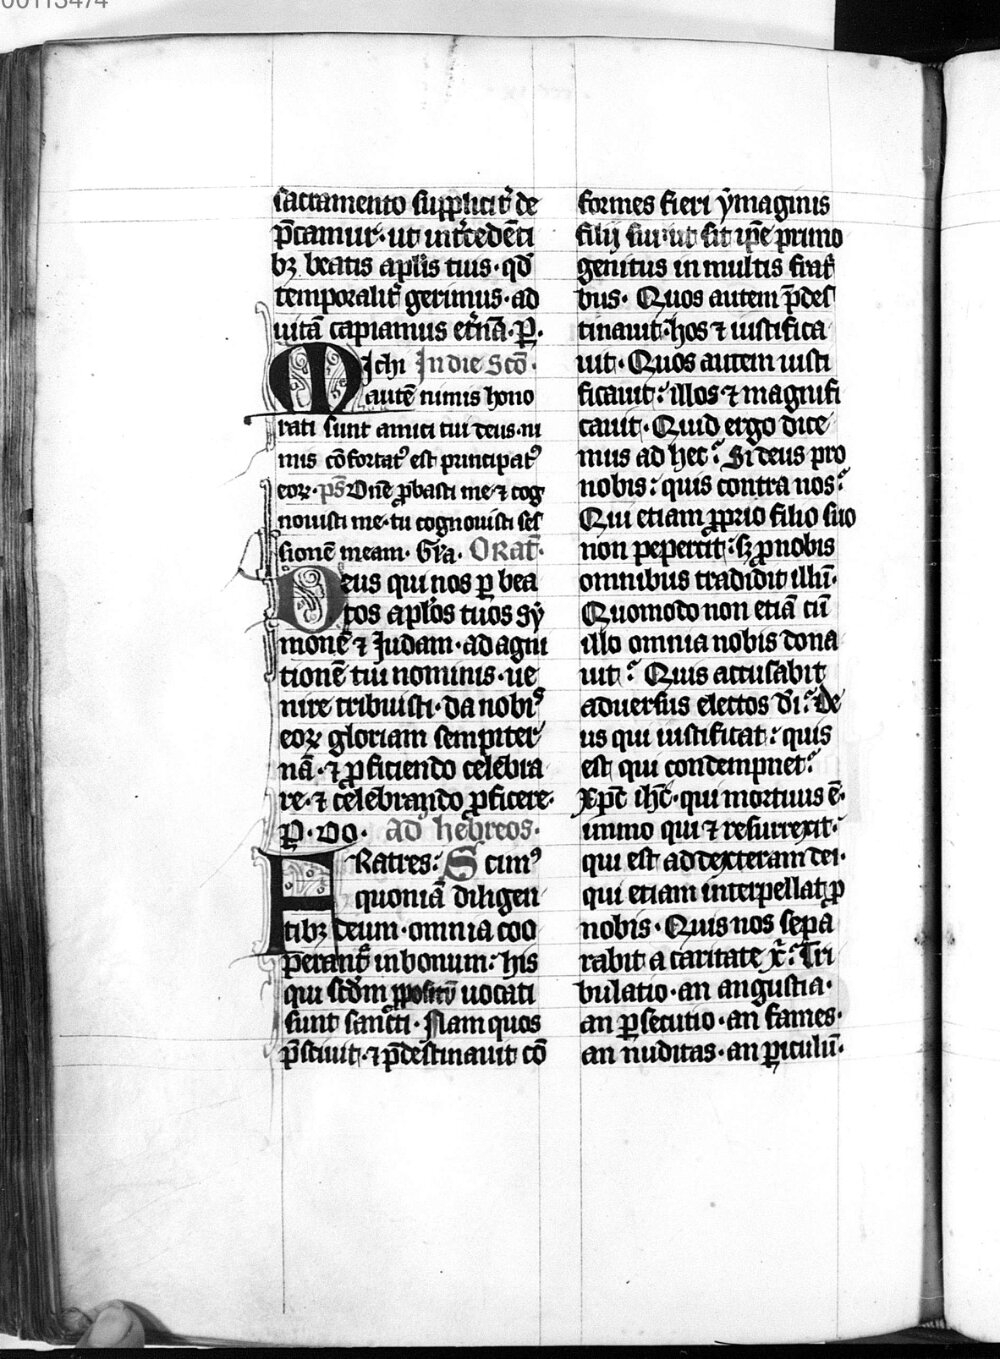 00113474
sacramento suppliciť de
p̄camur· ut int̾cedēti
bꝫ beatis apl̄is tuis· qđ
temporalit̾ gerimus· ad
uitā capiamus et̾nā· P̱.
Michi In die Scō·
autē nimis hono
rati sunt amici tui deus· ni
mis cōfortat᷒ est principat᷒
eoꝝ· ps̄ Dn̄e ꝓbasti me ⁊ cog
nouisti me· tu cognouisti ses
sionē meam· Gɫa. ORať·
Deus qui nos ꝑ bea
tos apl̄os tuos Sẏ
monē ⁊ Judam· ad agni
tionē tui nominis· ue
nire tribuisti· da nobis
eoꝝ gloriam sempiter
nā· ⁊ ꝓficiendo celebra
re· ⁊ celebrando ꝓficere·
P̱. DO. ad hebreos.
FRatres: Scim᷒
quoniā diligen
tibꝫ deum· omnia coo
perant᷑ in bonum: his
qui scd̄m ꝓpositū uocati
sunt sancti· Nam quos
p̄sciuit· ⁊ p̄destinauit cō
formes fieri ẏmaginis
filij sui· ut sit ip̄e primo
genitus in multis frat̾
bus· Quos autem p̄des
tinauit· hos ⁊ iustifica
uit· Quos autem iusti
ficauit: illos ⁊ magnifi
cauit· Quid ergo dice
mus ad hec? Si deus pro
nobis: quis contra nos?
Qui etiam ꝓprio filio suo
non pepercit: sꝫ ꝓ nobis
omnibus tradidit illū·
Quomodo non etiā cū
illo omnia nobis dona
uit? Quis accusabit
aduersus electos dī? De
us qui iustificat: quis
est qui condempnet?
xp̄c ih̄c· qui mortuus ē·
immo qui ⁊ resurrexit·
qui est ad dexteram dei·
qui etiam interpellat ꝓ
nobis· Quis nos sepa
rabit a caritate x̄? Tri
bulatio· an angustia·
an ꝑsecutio· an fames·
an nuditas· an ꝑiculū·